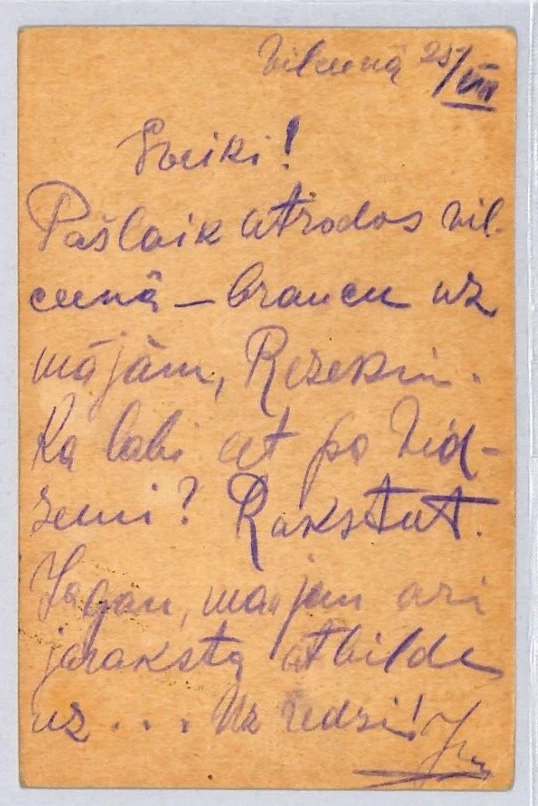 Vilcienā 25/VIII
Sveiki!
Pašlaik atrodos vil-
cienā – braucu uz
mājām, Rēzekni.
Kā labi et po Vid-
zemi? Rakstat.
jan arī
jāraksta atbilde
uz . . . Uz redzi!